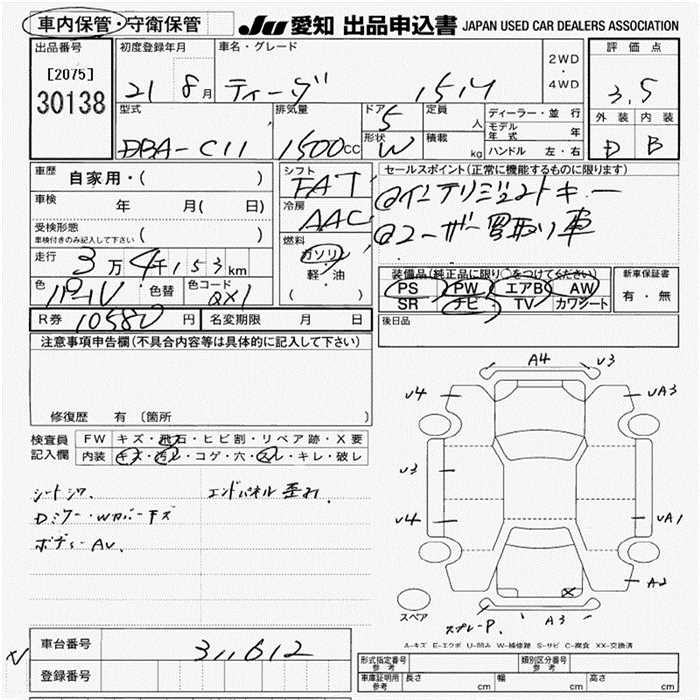 車内保管・守衛保管
JU 愛知 出品申込書 JAPAN USED CAR DEALERS ASSOCIATION
出品番号
[2075]
30138
初度登録年月
21 8月
車名・グレード
ティーダ 15M
2WD
・
4WD
評価点
3.5
外装 内装
D B
型式
DBA-C11
排気量
1500cc
ドア 5
形状 W
定員 人
積載 kg
ディーラー・並行
モデル年式 年
ハンドル 左・右
車歴 自家用・( )
車検 年 月( 日)
受検形態
車検付きのみ記入して下さい ( )
走行 3万4千153km
色 パール 色替 色コード QX1
R券 10580円 名変期限 月 日
シフト
FAT
冷房
AAC
燃料
ガソリン
軽・油
( )
セールスポイント(正常に機能するものに限ります)
@インテリジェントキー
@ユーザー買取り車
装備品(純正品に限り○をつけてください)
PS PW エアB AW
SR ナビ・TV カワシート
新車保証書
有・無
後日品
注意事項申告欄(不具合内容等は具体的に記入して下さい)
修復歴 有 〔箇所 〕
検査員記入欄
FW キズ・飛石・ヒビ割・リペア跡・X要
内装 キズ・汚レ・コゲ・穴・スレ・キレ・破レ
シートシワ. エンドパネル歪み
Dミラー・Wカバーキズ
ボディーAU.
A4 U3
U4 UA3
U3
U4 UA1
A2
スペア
スプレーP. A3
A-キズ E-エクボ U-凹み W-補修跡 S-サビ C-腐食 XX-交換済
車台番号 311612
登録番号
形式指定番号 参考
類別区分番号 参考
車庫証明用 参考 長さ cm 幅 cm 高さ cm